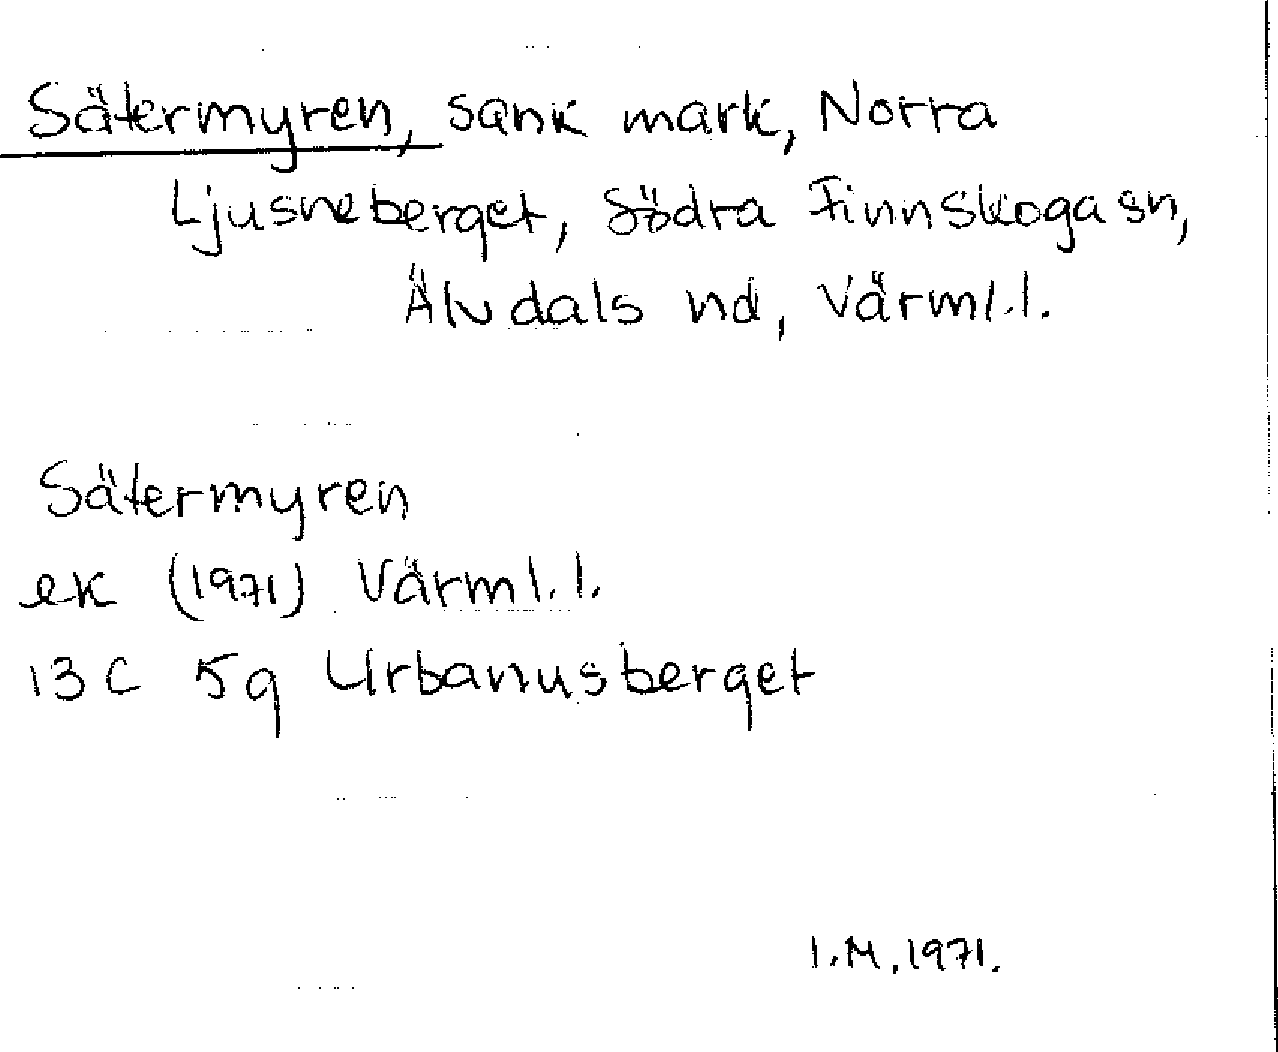 Sätermyren, sank mark, Norra
Ljusneberget, Södra Finnskoga sn,
Älvdals nd, Värml.l.
Sätermyren
ek (1971) Värml.l.
13C 5g Urbanusberget
I.M.1971.